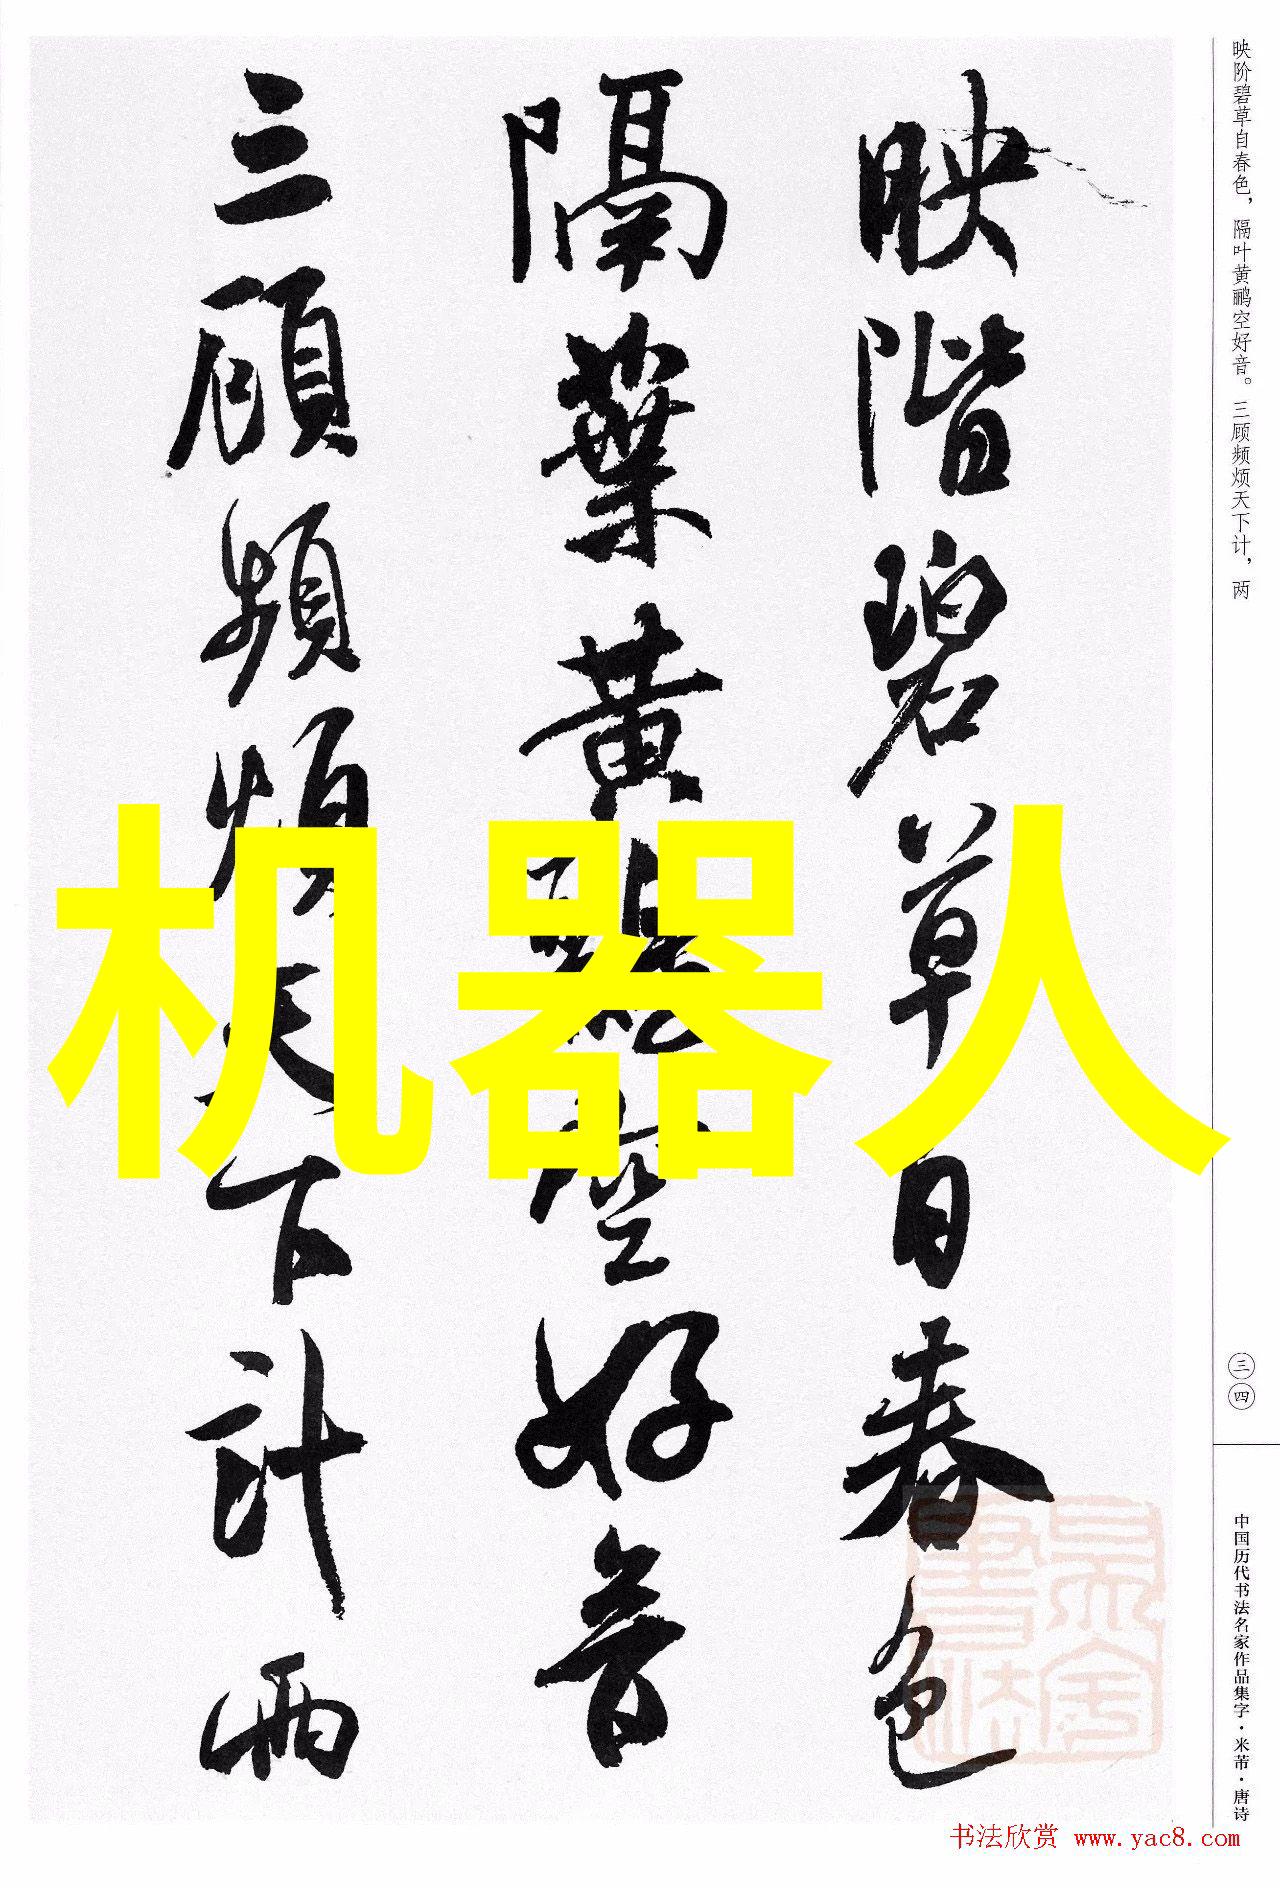 映階碧草自春色
隔葉黃鸝空好音
三顧頻煩天下計兩
机器人
映阶碧草自春色，隔叶黄鹂空好音。三顾频烦天下计，两
三四
中国历代书法名家作品集字·米芾·唐诗
书法欣赏 www.yac8.com